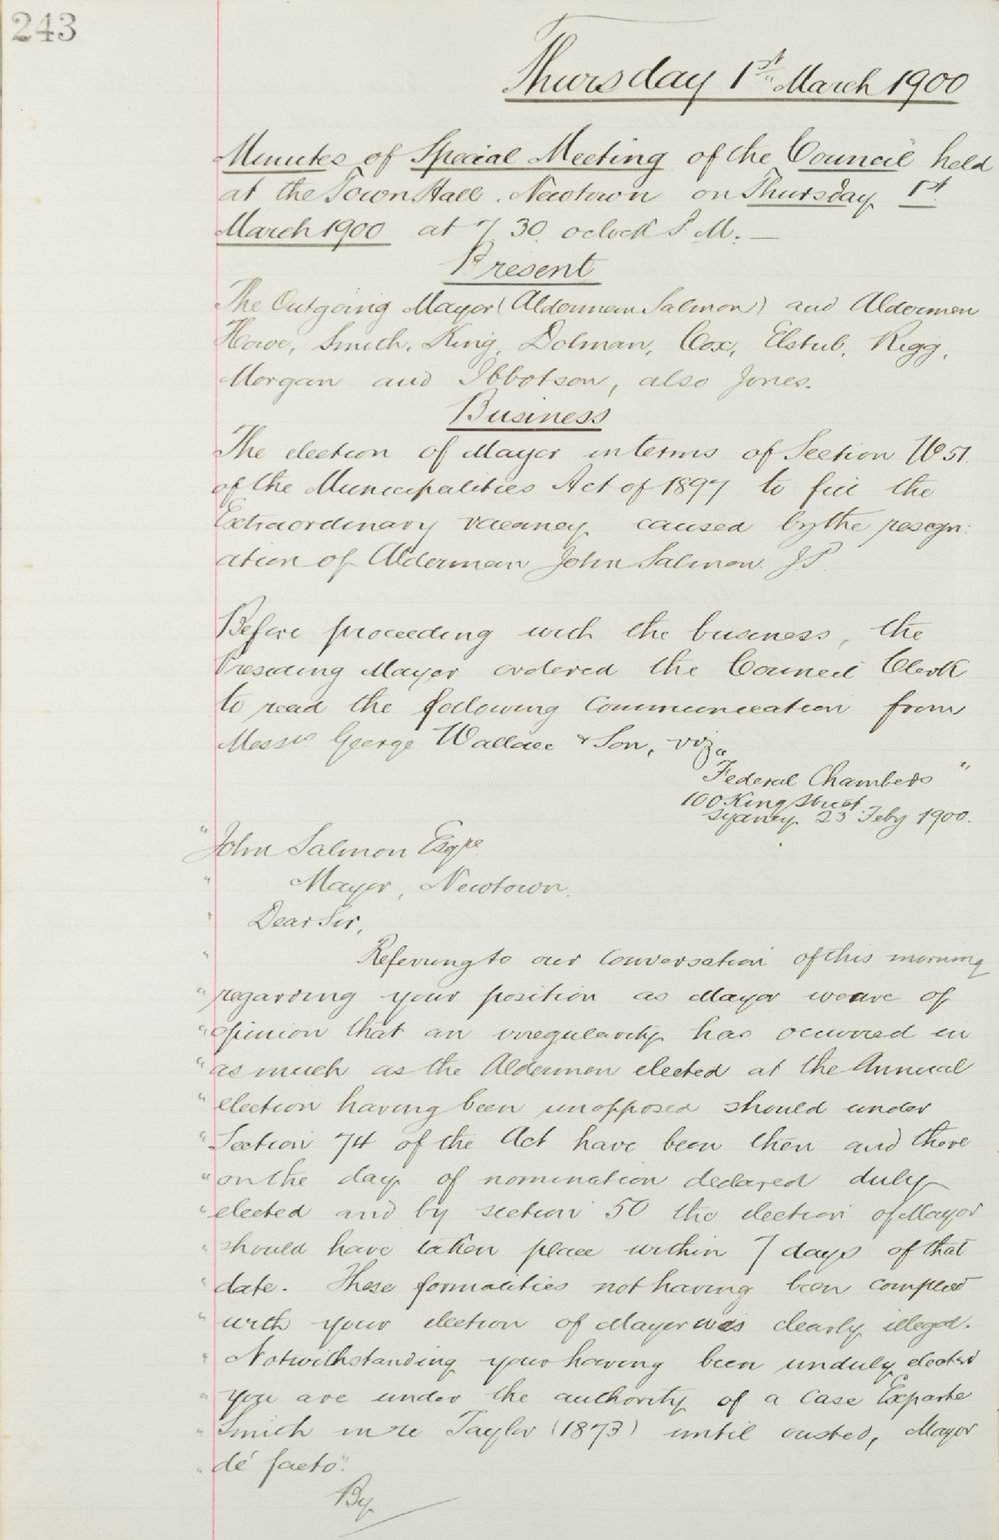 243
Thursday 1st March 1900
Minutes of Special Meeting of the Council held
at the Town Hall. Newtown on Thursday 1st
March 1900 at 7/30 oclock P.M. —
Present
The Outgoing Mayor (Alderman Salmon) and Aldermen
Howe, Smith, King, Dolman, Cox, Elstub, Rigg,
Morgan and Ibbotson, also Jones.
Business
The election of Mayor in terms of Section No 51.
of the Municipalities Act of 1897 to fill the
Extraordinary vacancy caused by the resign:
ation of Alderman John Salmon J.P.
Before proceeding with the business, the
Presiding Mayor ordered the Council Clerk
to read the following Communication from
Messrs George Wallace & Son, viz "
Federal Chambers "
100 King Street.
Sydney 23 Feby 1900.
"John Salmon Esqre.
" Mayor, Newtown.
" Dear Sir,
" Referring to our Conversation of this morning
"regarding your position as Mayor we are of
"opinion that an irregularity has occurred in
"as much as the Aldermen elected at the Annual
"election having been unopposed should under
"Section 74 of the Act have been then and there
"on the day of nomination declared duly
"elected and by section 50 the election of Mayor
"should have taken place within 7 days of that
"date. These formalities not having been complied
"with your election of Mayor was clearly illegal.
"Notwithstanding your having been unduly elected
"you are under the authority of a Case Exparte
"Smith in re Taylor (1873) until ousted, Mayor
"de facto".
By